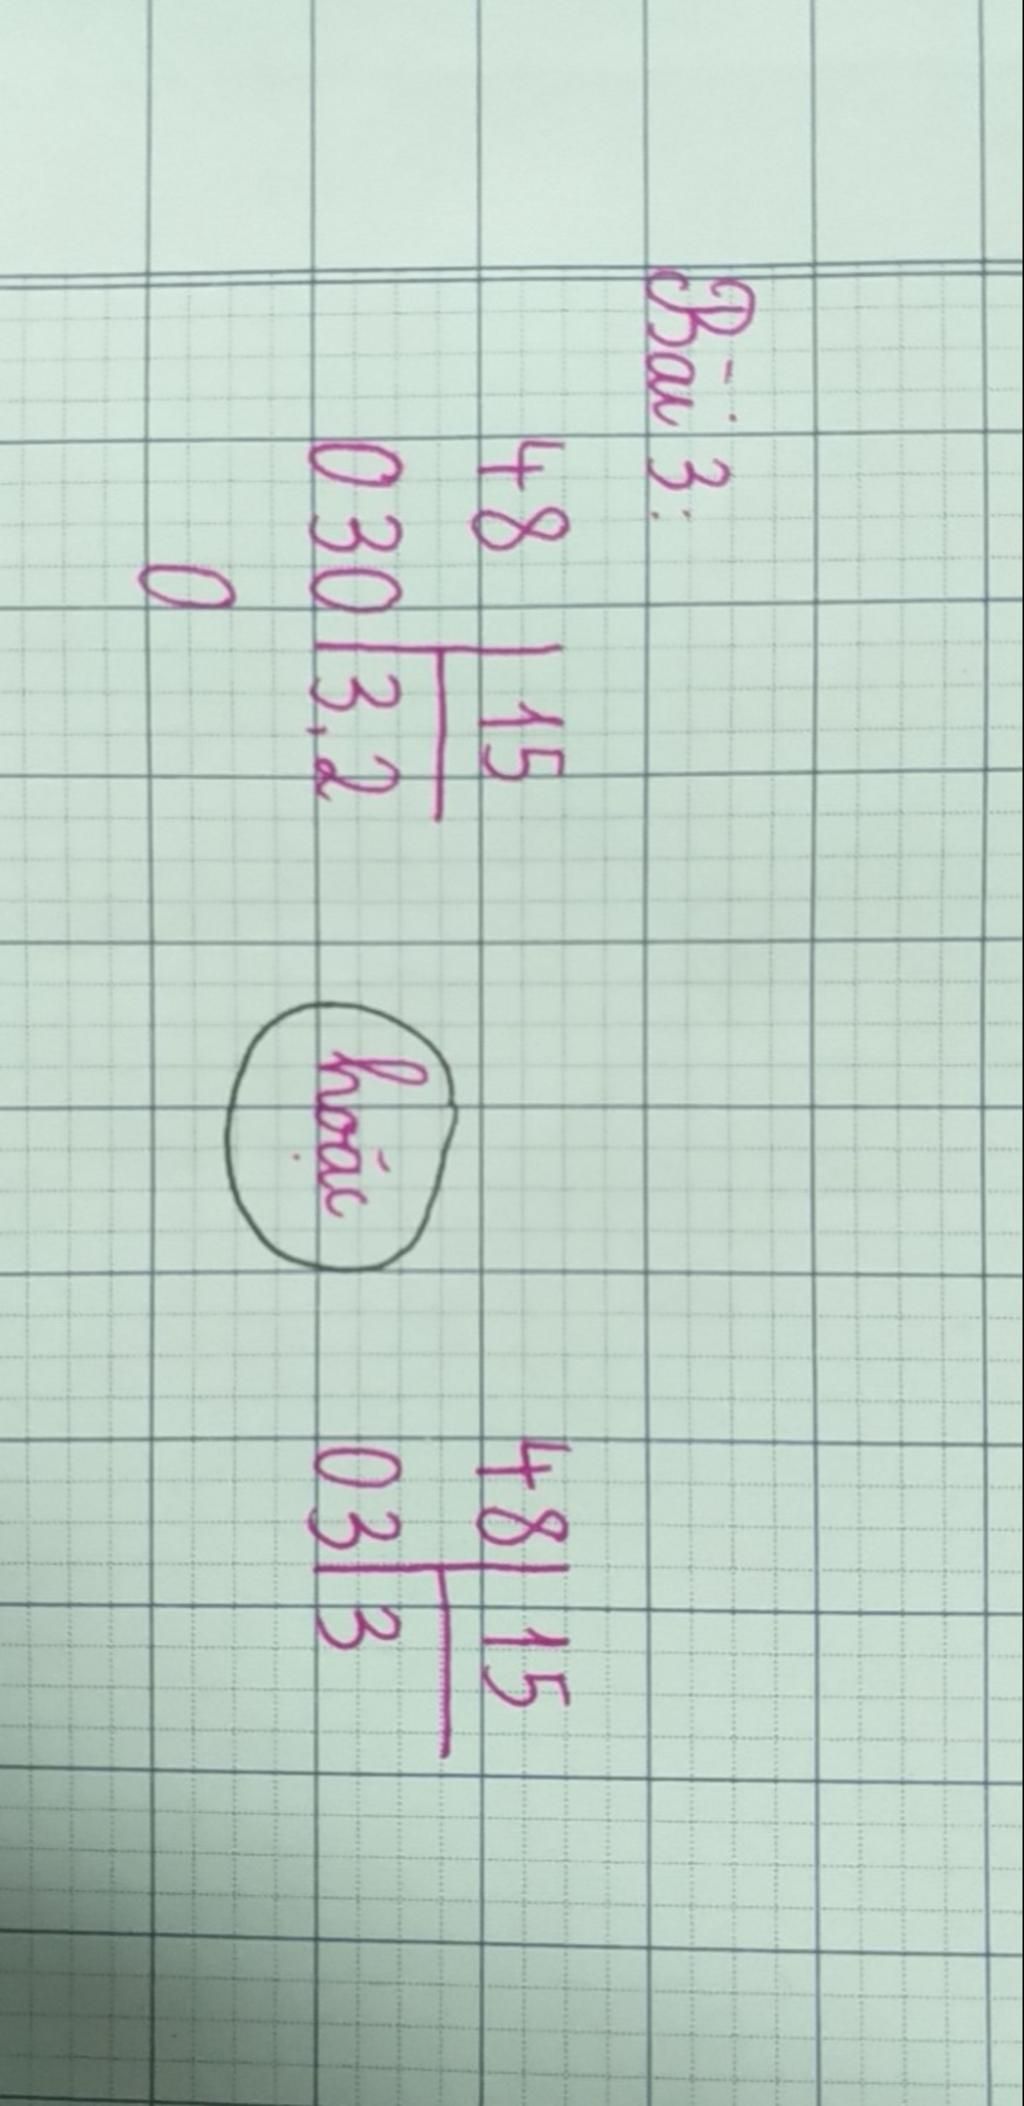 Bài 3:
48 | 15
030 | 3,2
0
hoặc
48 | 15
03 | 3